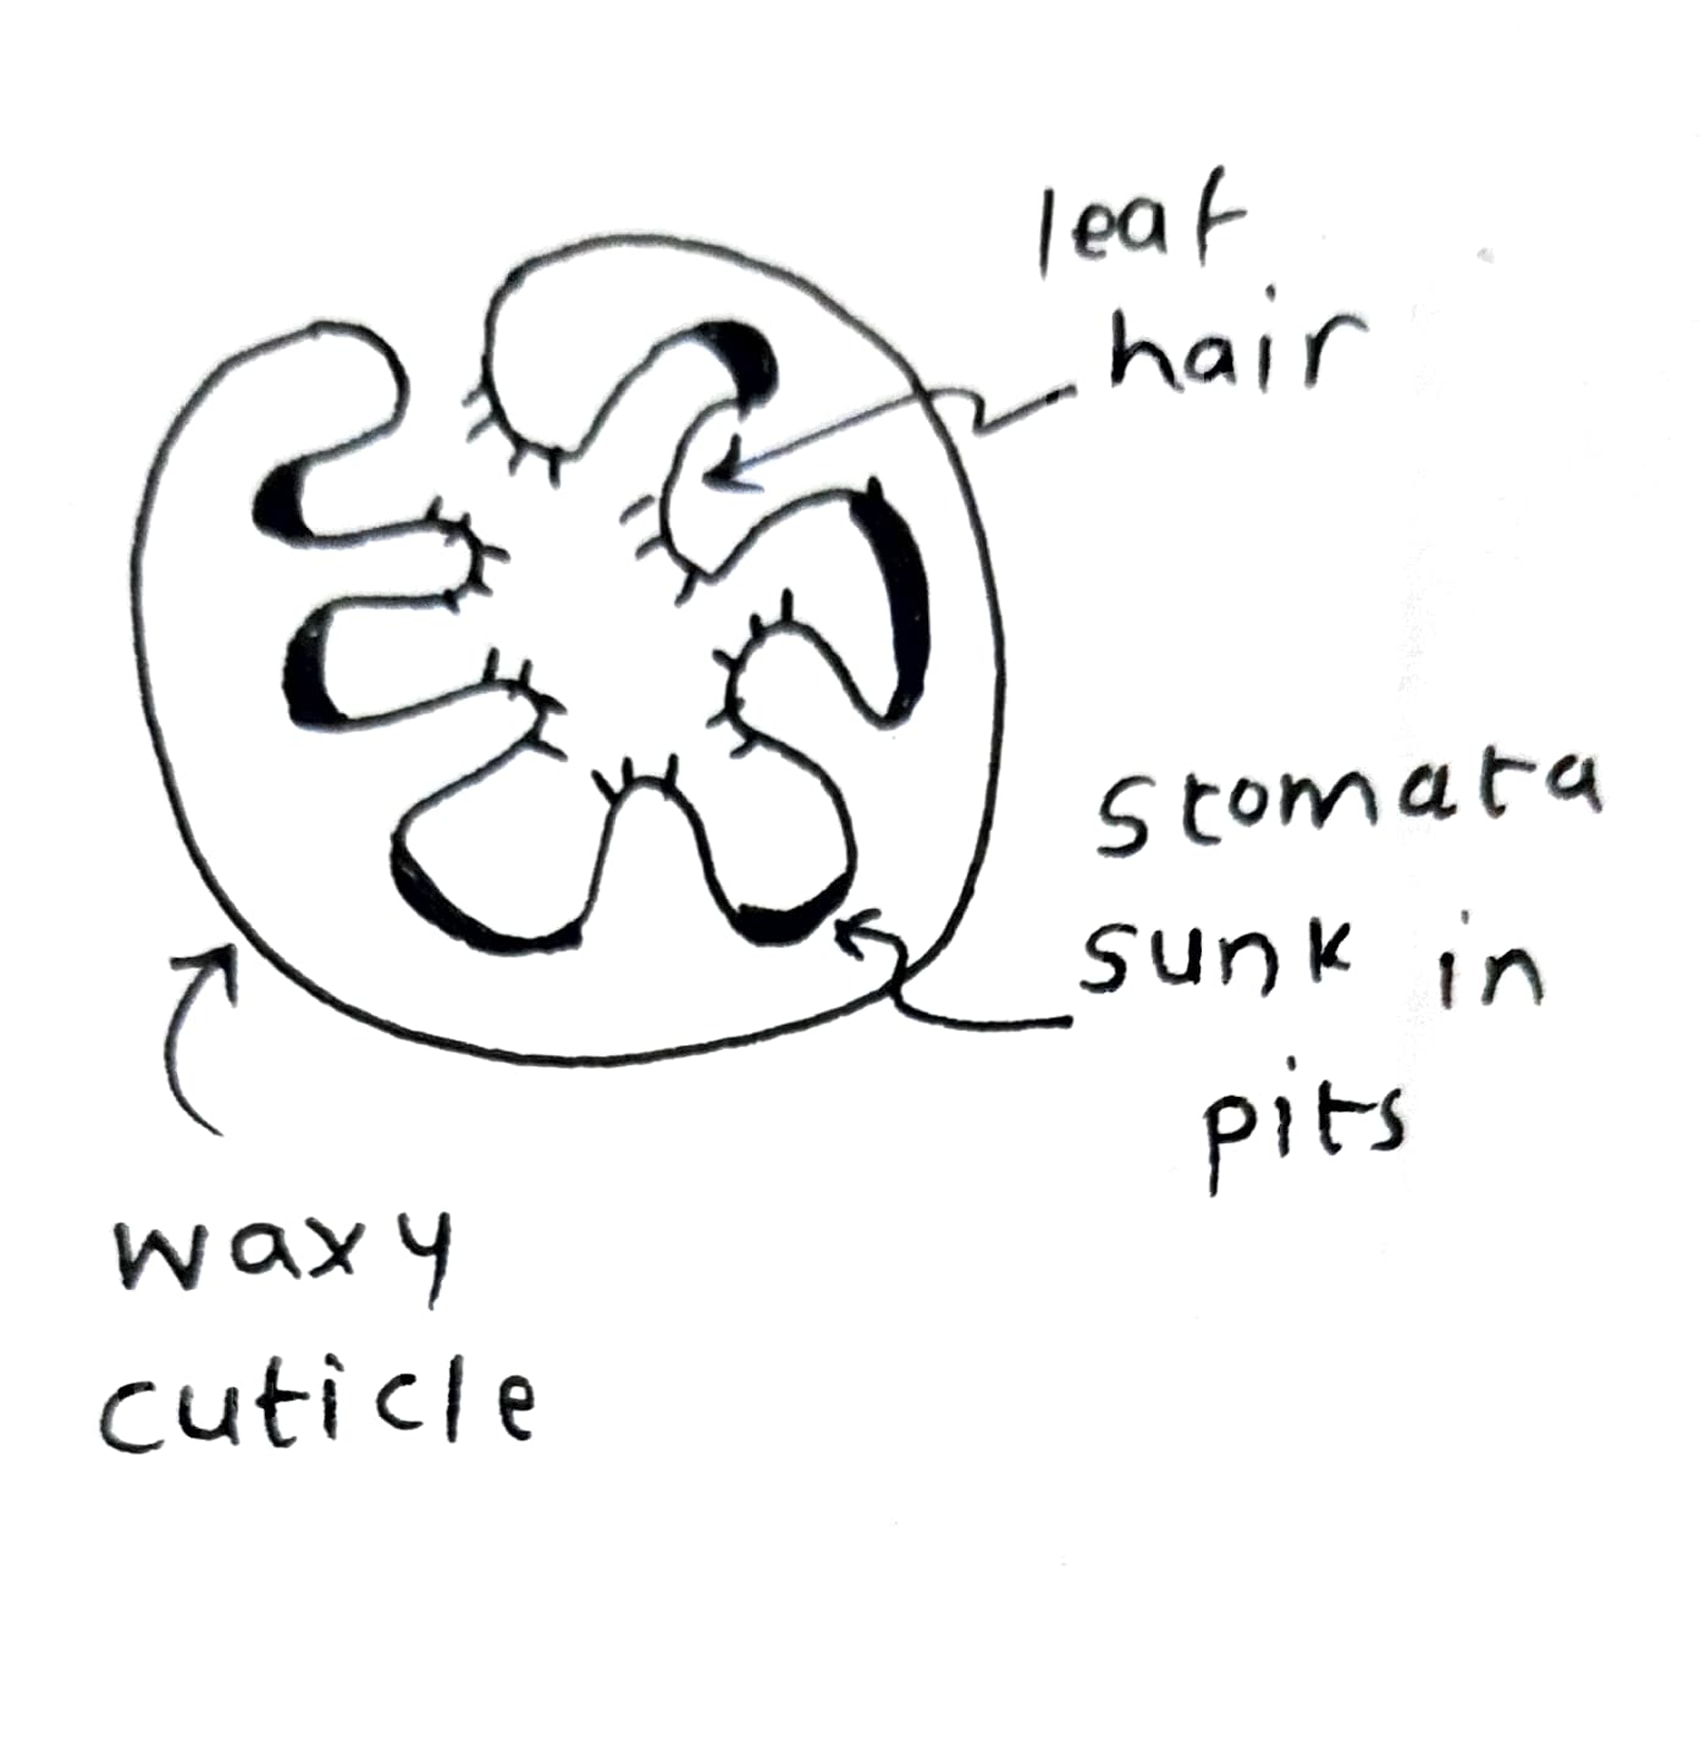 leaf
hair
stomata
sunk in
pits
waxy
cuticle